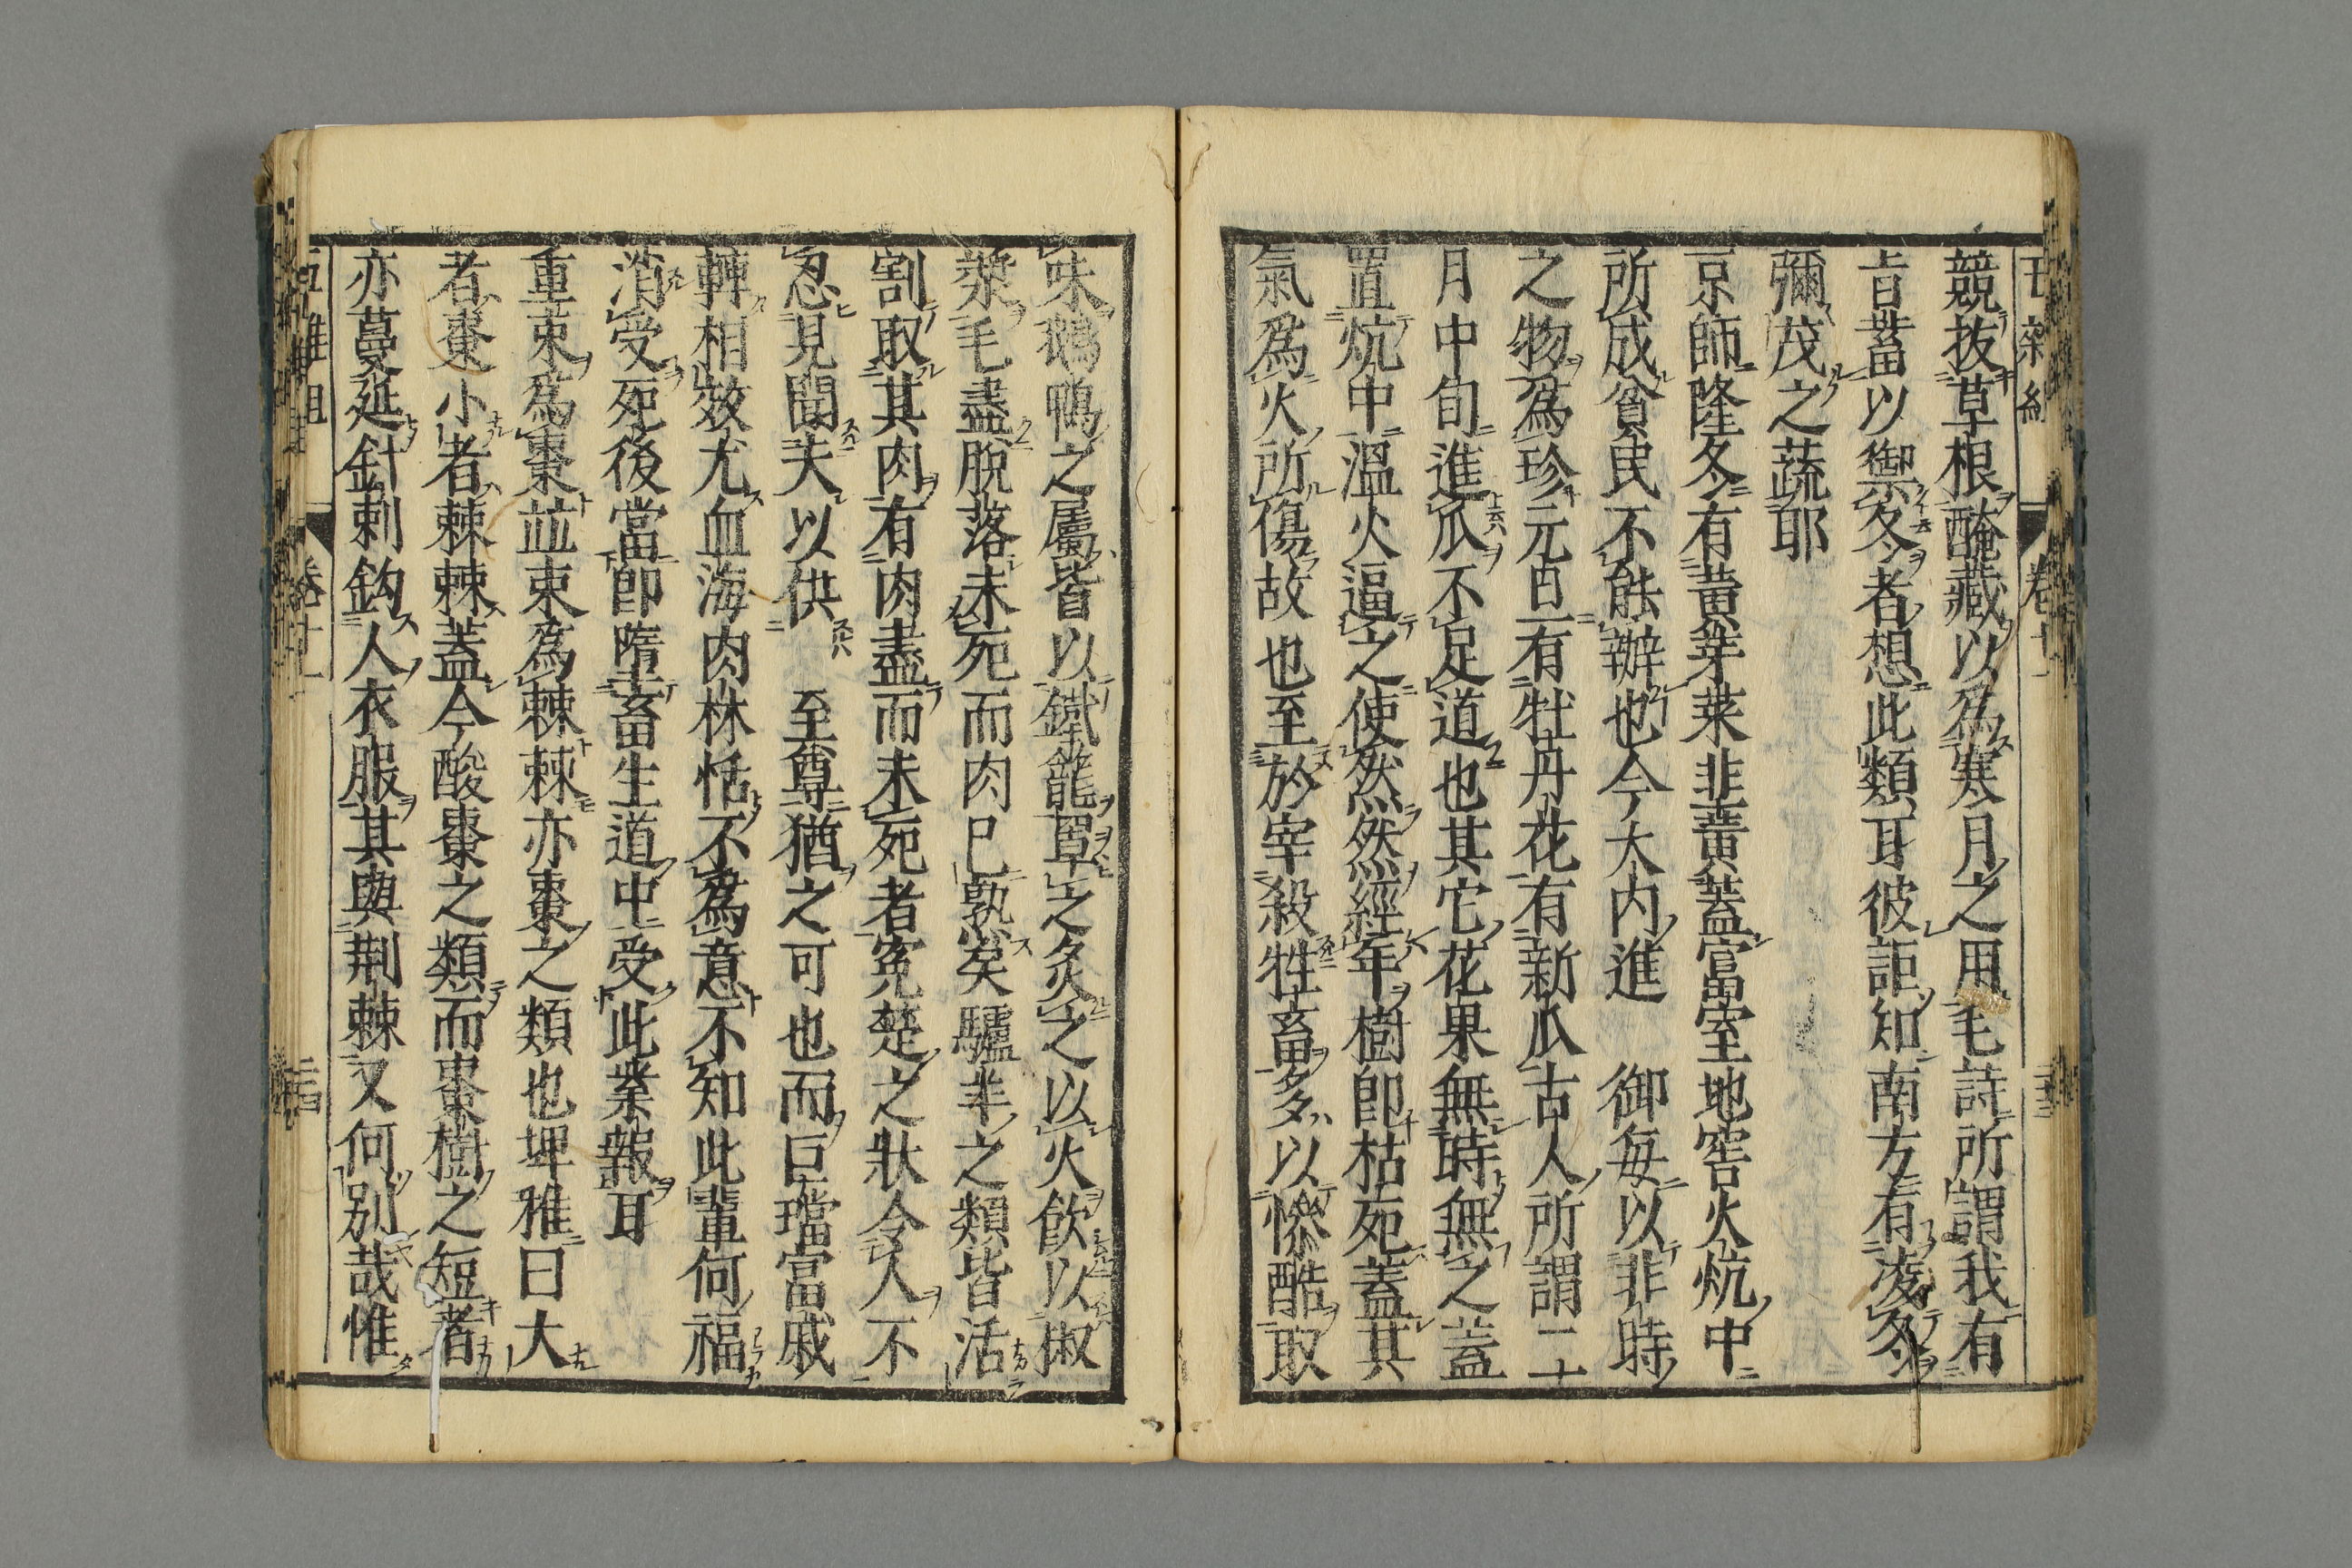 競抜草根醃藏以為寒月之用毛詩所謂我有
旨蓄以御冬者想此類耳彼詎知南方有凌冬
彌茂之蔬耶
京師隆冬有黃芽菜韭黃蓋富室地窖火炕中
所成貧民不能辦也今大内進　御每以非時
之物為珍元旦有牡丹花有新瓜古人所謂二
月中旬進瓜不足道也其它花果無時無之蓋
置炕中溫火逼之使然然經年樹即枯死蓋其
氣為火所傷故也至於宰殺牲畜多以慘酷取
味鵝鴨之屬皆以鐵籠罩之炙之以火飲以椒
漿毛盡脫落未死而肉已熟矣驢羊之類皆活
割取其肉有肉盡而未死者冤楚之狀令人不
忍見聞夫以供　至尊猶之可也而巨璫富戚
轉相效尤血海肉林恬不為意不知此輩何福
消受死後當即墮畜生道中受此業報耳
重束為棗並束為棘棘亦棗之類也埤雅曰大
者棗小者棘棘蓋今酸棗之類而棗樹之短者
亦蔓延針刺鈎人衣服其與荆棘又何別哉惟